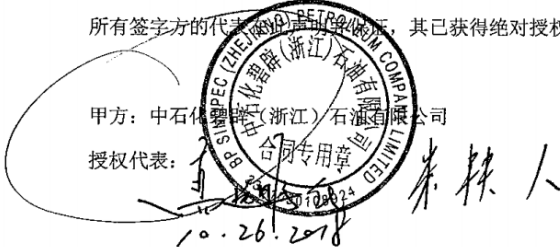 所有签字方的代表在此声明并保证，其已获得绝对授权
甲方：中石化碧辟（浙江）石油有限公司
授权代表：
BP SINOPEC (ZHEJIANG) PETROLEUM COMPANY LIMITED
中石化碧辟（浙江）石油有限公司
合同专用章
10.26.2018